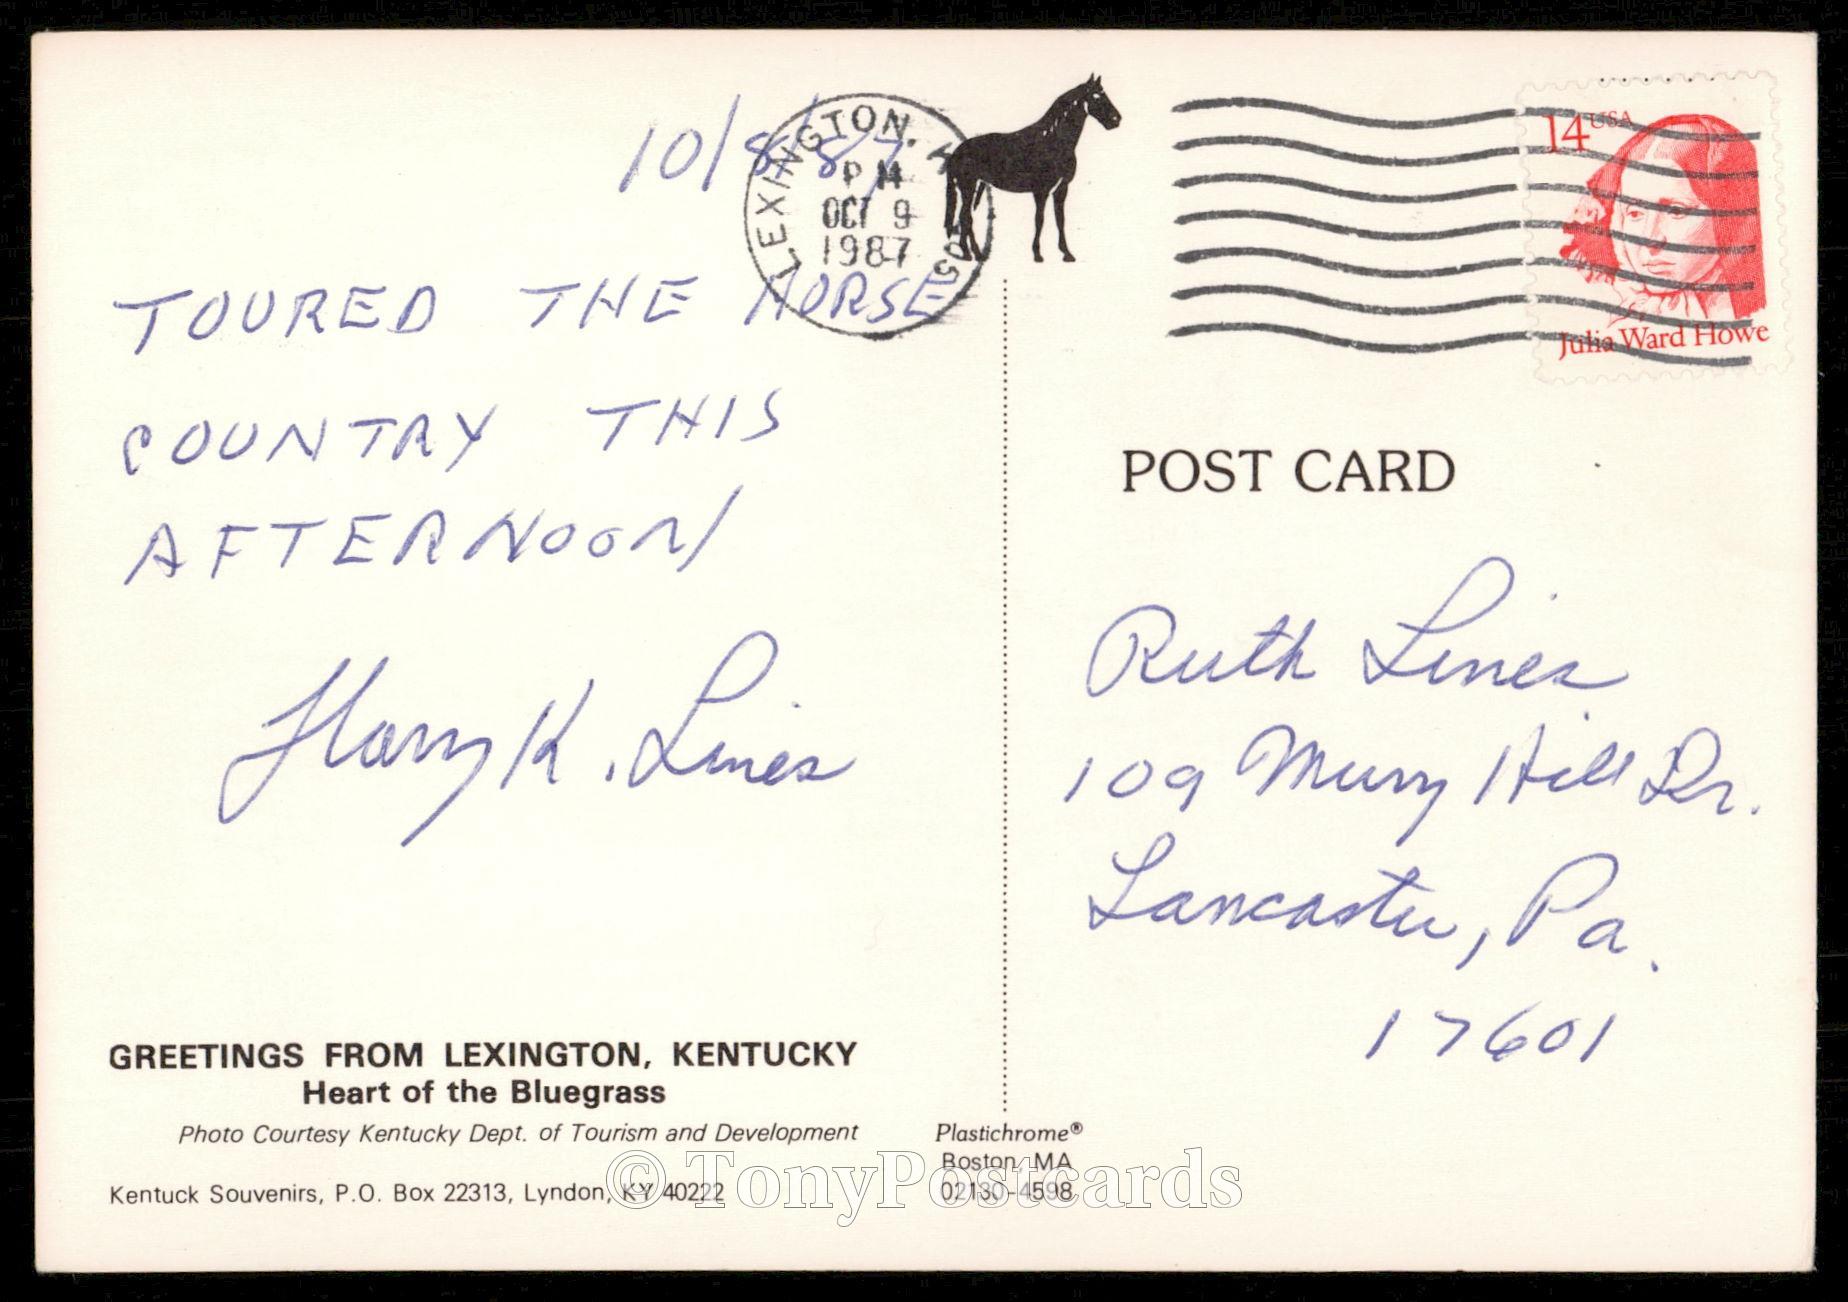 10/8/87
LEXINGTON, K 405
PM
OCT 9
1987
TOURED THE HORSE
COUNTRY THIS
AFTERNOON
Harry K. Lines
GREETINGS FROM LEXINGTON, KENTUCKY
Heart of the Bluegrass
Photo Courtesy Kentucky Dept. of Tourism and Development
Kentuck Souvenirs, P.O. Box 22313, Lyndon, KY 40222
Plastichrome®
Boston, MA
02130-4598
14 USA
Julia Ward Howe
POST CARD
Ruth Lines
109 Murry Hill Dr.
Lancaster, Pa.
17601
© TonyPostcards